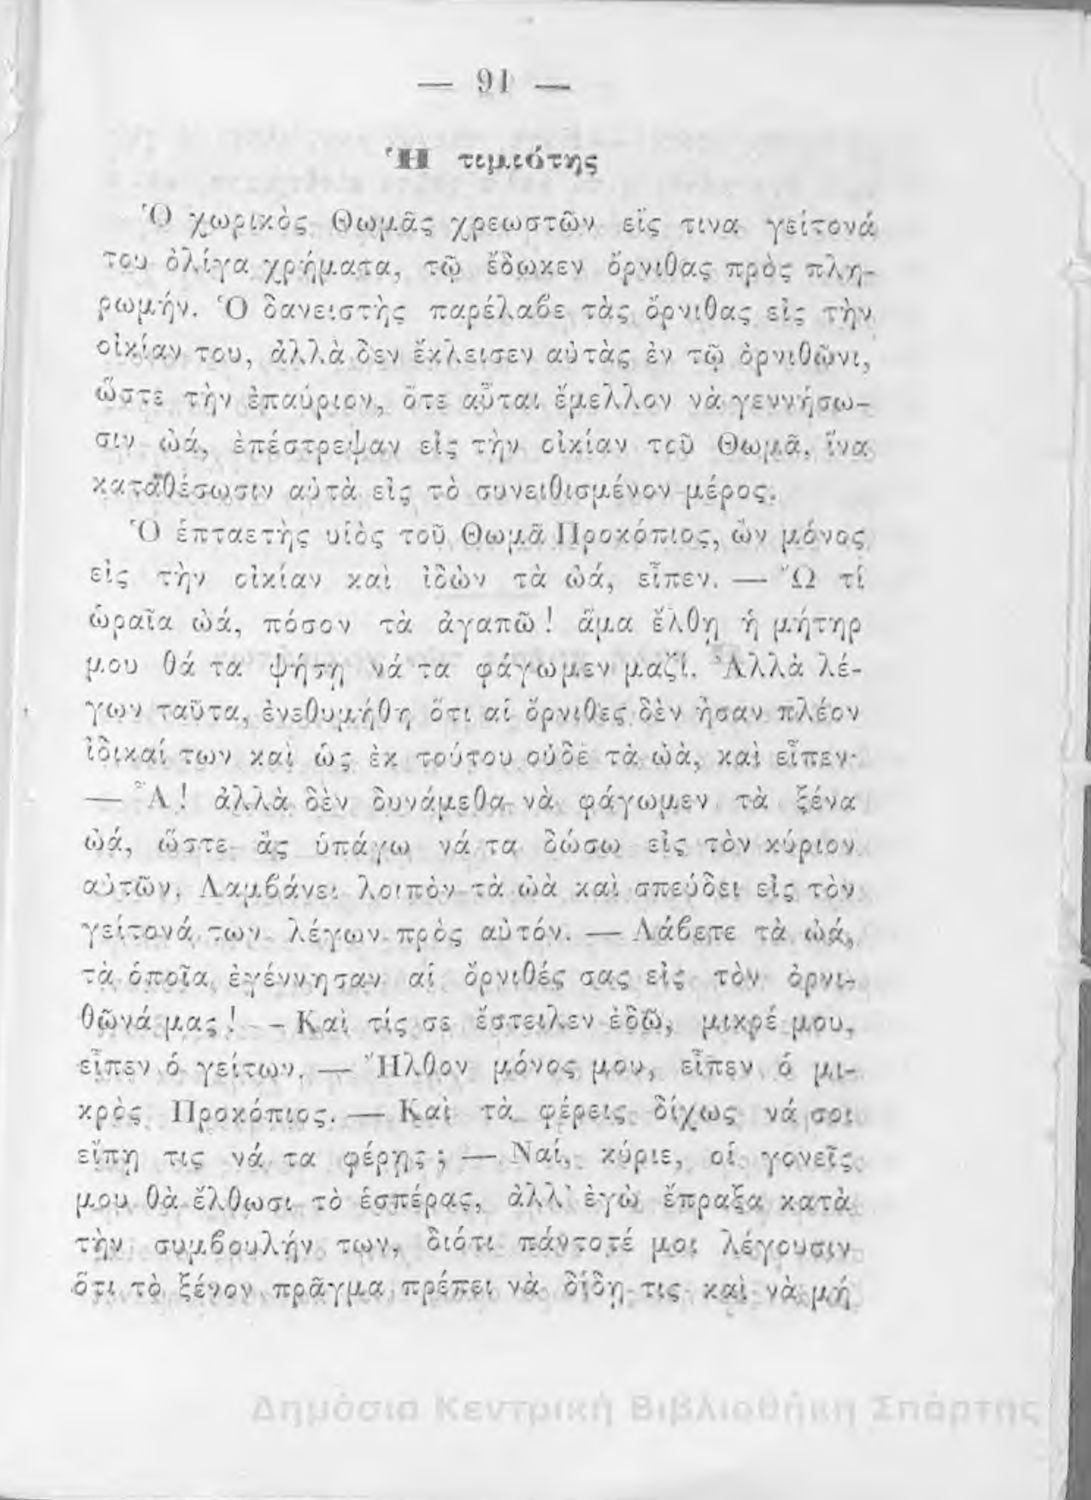 — 91 —
Ἡ τιμιότης
Ὁ χωρικὸς Θωμᾶς χρεωστῶν εἴς τινα γείτονά
του ὀλίγα χρήματα, τῷ ἔδωκεν ὄρνιθας πρὸς πλη-
ρωμήν. Ὁ δανειστὴς παρέλαβε τὰς ὄρνιθας εἰς τὴν
οἰκίαν του, ἀλλὰ δεν ἔκλεισεν αὐτὰς ἐν τῷ ὀρνιθῶνι,
ὥστε τὴν ἐπαύριον, ὅτε αὗται ἔμελλον νὰ γεννήσω-
σιν ὠά, ἐπέστρεψαν εἰς τὴν οἰκίαν τοῦ Θωμᾶ, ἵνα
καταθέσωσιν αὐτὰ εἰς τὸ συνειθισμένον μέρος.
Ὁ ἑπταετὴς υἱὸς τοῦ Θωμᾶ Προκόπιος, ὢν μόνος
εἰς τὴν οἰκίαν καὶ ἰδὼν τὰ ὠά, εἶπεν. — Ὢ τί
ὡραῖα ὠά, πόσον τὰ ἀγαπῶ! ἅμα ἔλθῃ ἡ μήτηρ
μου θά τα ψήσῃ νά τα φάγωμεν μαζί. Ἀλλὰ λέ-
γων ταῦτα, ἐνεθυμήθη ὅτι αἱ ὄρνιθες δὲν ἦσαν πλέον
ἰδικαί των καὶ ὡς ἐκ τούτου οὐδὲ τὰ ὠὰ, καὶ εἶπεν·
— Ἆ! ἀλλὰ δὲν δυνάμεθα νὰ φάγωμεν τὰ ξένα
ὠά, ὥστε ἂς ὑπάγω νά τα δώσω εἰς τὸν κύριον
αὐτῶν. Λαμβάνει λοιπὸν τὰ ὠὰ καὶ σπεύδει εἰς τὸν
γείτονά των λέγων πρὸς αὐτόν. — Λάβετε τὰ ὠά,
τὰ ὁποῖα ἐγέννησαν αἱ ὄρνιθές σας εἰς τὸν ὀρνι-
θῶνά μας! — Καὶ τίς σε ἔστειλεν ἐδῶ, μικρέ μου,
εἶπεν ὁ γείτων. — Ἦλθον μόνος μου, εἶπεν ὁ μι-
κρὸς Προκόπιος. — Καὶ τὰ φέρεις δίχως νά σοι
εἴπῃ τις νά τα φέρῃς; — Ναί, κύριε, οἱ γονεῖς
μου θὰ ἔλθωσι τὸ ἑσπέρας, ἀλλ' ἐγὼ ἔπραξα κατὰ
τὴν συμβουλήν των, διότι πάντοτέ μοι λέγουσιν
ὅτι τὸ ξένον πρᾶγμα πρέπει νὰ δίδῃ τις καὶ νὰ μή
Δημόσια Κεντρική Βιβλιοθήκη Σπάρτης